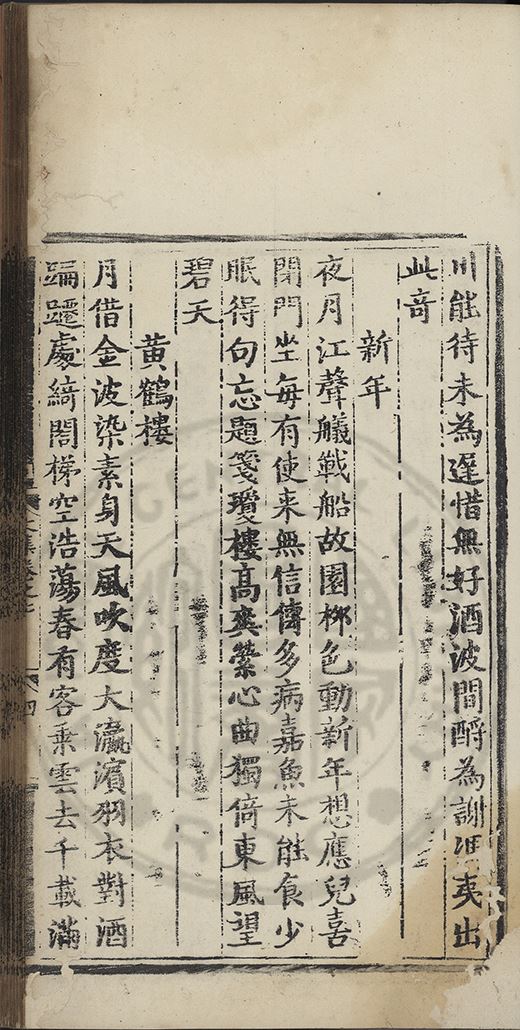 川能待未為遲惜無好酒波間酹為訓馮夷出
此竒
新年
夜月江聲艤載船故園柳色動新年想應兒喜
閉門坐每有使来無信傳多病嘉魚未能食少
眠得句忘題箋瓊樓高爽縈心曲獨倚東風望
碧天
黄鶴樓
月借金波染素身天風吹度大瀛濱羽衣對酒
蹁躚處綺閣梯空浩蕩春有客乗雲去千載滿